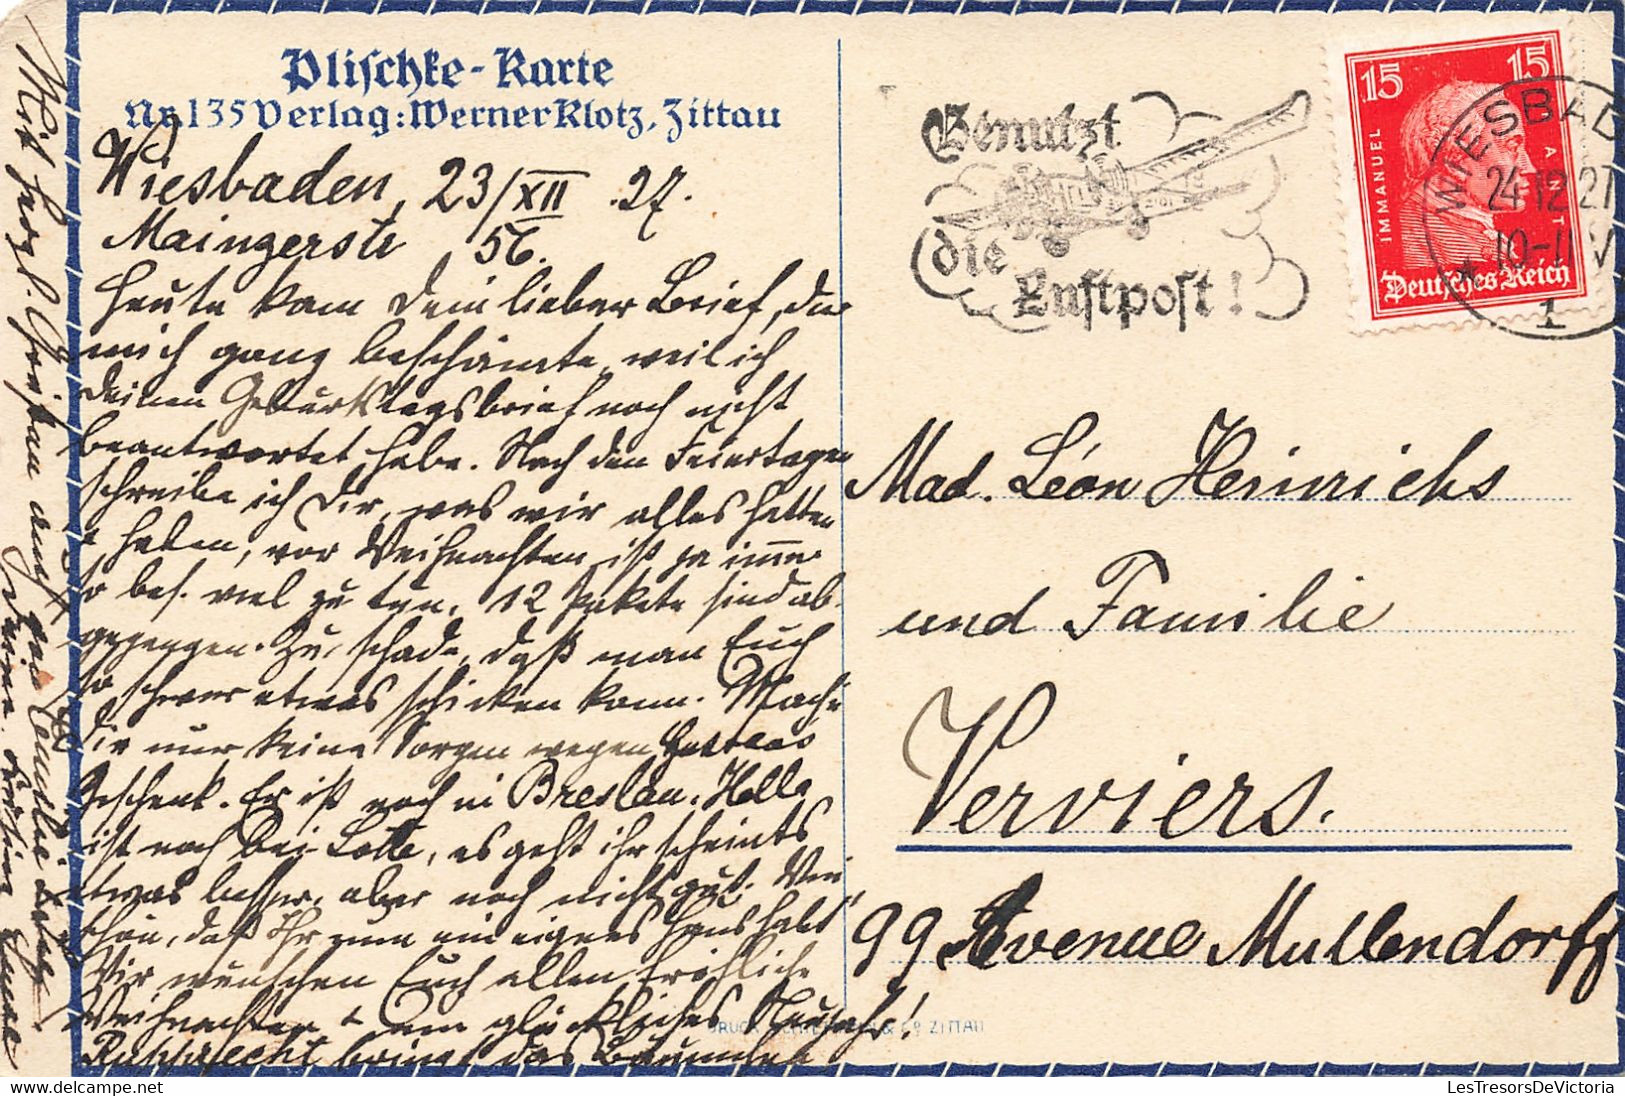 Plischke-Karte
Nr. 135 Verlag: Werner Klotz, Zittau
Wiesbaden, 23/XII .27.
Mainzerstr 56.
Heute kam Dein lieber Brief, der
mich ganz beschämte, weil ich
Deinen Geburtstagsbrief noch nicht
beantwortet habe. Nach den Feiertagen
schreibe ich Dir, was wir alles hatten
+ haben, vor Weihnachten ist ja immer
so bes. viel zu tun. 12 Pakete sind ab-
gegangen. Zu schade, daß man Euch
so schwer etwas schicken kann. Mache
Dir nur keine Sorgen wegen Gustavs
Geschenk. Er ist noch in Breslau, Hella
ist noch bei Lotte, es geht ihr scheints
etwas besser, aber noch nicht gut. Wie
schön, daß Ihr nun ein eignes Haus habt
Wir wünschen Euch allen fröhliche
Weihnachten + ein glückliches Neujahr!
Rupprecht bringt das Bäumchen
Mit herzl. Grüßen auch von
Deine
Benutzt
die
Luftpost!
15 15
IMMANUEL KANT
Deutsches Reich
WIESBADEN
24 12 27
* 10-11 V
1
Mad. Léon Heinrichs
und Familie
Verviers.
99 Avenue Mullendorff
DRUCK & Co ZITTAU
LesTresorsDeVictoria